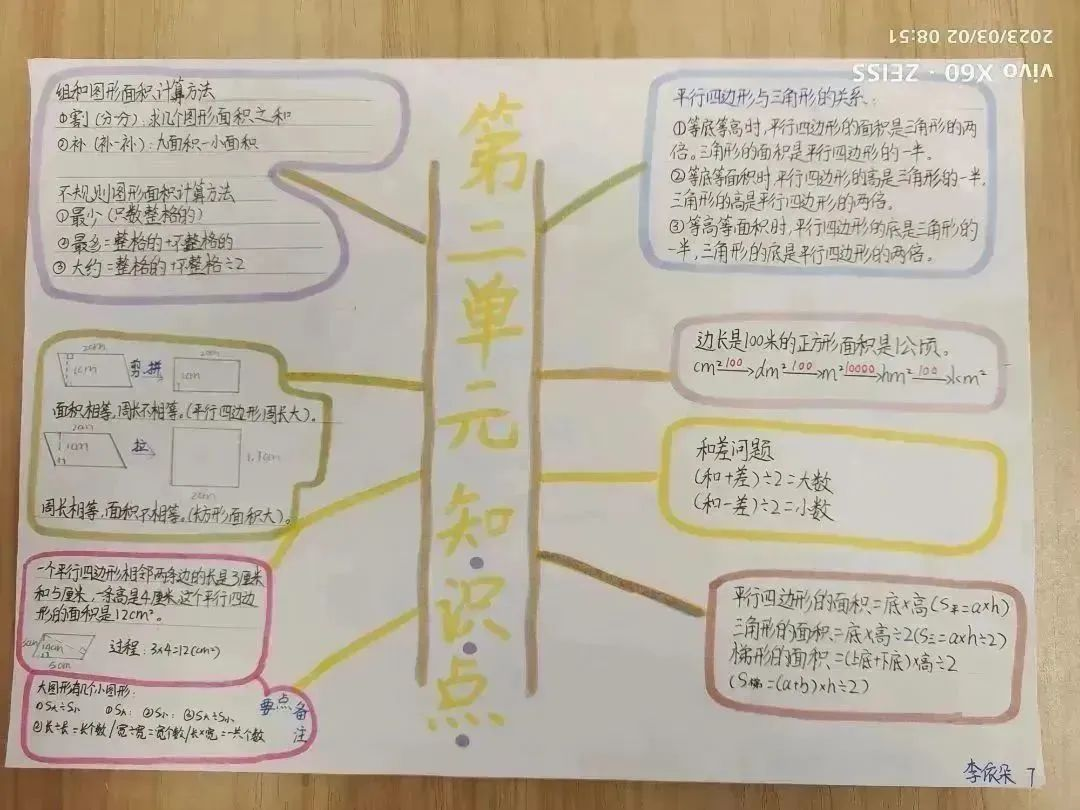 2023/03/02 08:51
vivo X60 · ZEISS
第二单元知识点
组和图形面积计算方法
①割(分分):求几个图形面积之和
②补(补一补):大面积-小面积
不规则图形面积计算方法
①最少(只数整格的)
②最多=整格的+不整格的
③大约=整格的+不整格÷2
2cm
1cm
剪.拼
2cm
1cm
面积相等,周长不相等。(平行四边形周长大)。
2cm
1cm
拉
2cm
周长相等,面积不相等。(长方形面积大)。
一个平行四边形相邻两条边的长是3厘米
和5厘米,一条高是4厘米,这个平行四边
形的面积是12cm²。
5cm
过程:3×4=12(cm²)
大图形有几个小图形:
②长÷长=长个数/宽÷宽=宽个数/长×宽=一共个数
要点备注
平行四边形与三角形的关系:
①等底等高时,平行四边形的面积是三角形的两
倍。三角形的面积是平行四边形的一半。
②等底等面积时,平行四边形的高是三角形的一半,
三角形的高是平行四边形的两倍。
③等高等面积时,平行四边形的底是三角形的
一半,三角形的底是平行四边形的两倍。
边长是100米的正方形面积是1公顷。
cm² 100 dm² 100 m² 10000 hm² 100 km²
和差问题
(和+差)÷2=大数
(和-差)÷2=小数
平行四边形的面积=底×高(S平=a×h)
三角形的面积=底×高÷2(S三=a×h÷2)
梯形的面积=(上底+下底)×高÷2
(S梯=(a+b)×h÷2)
李依朵 7